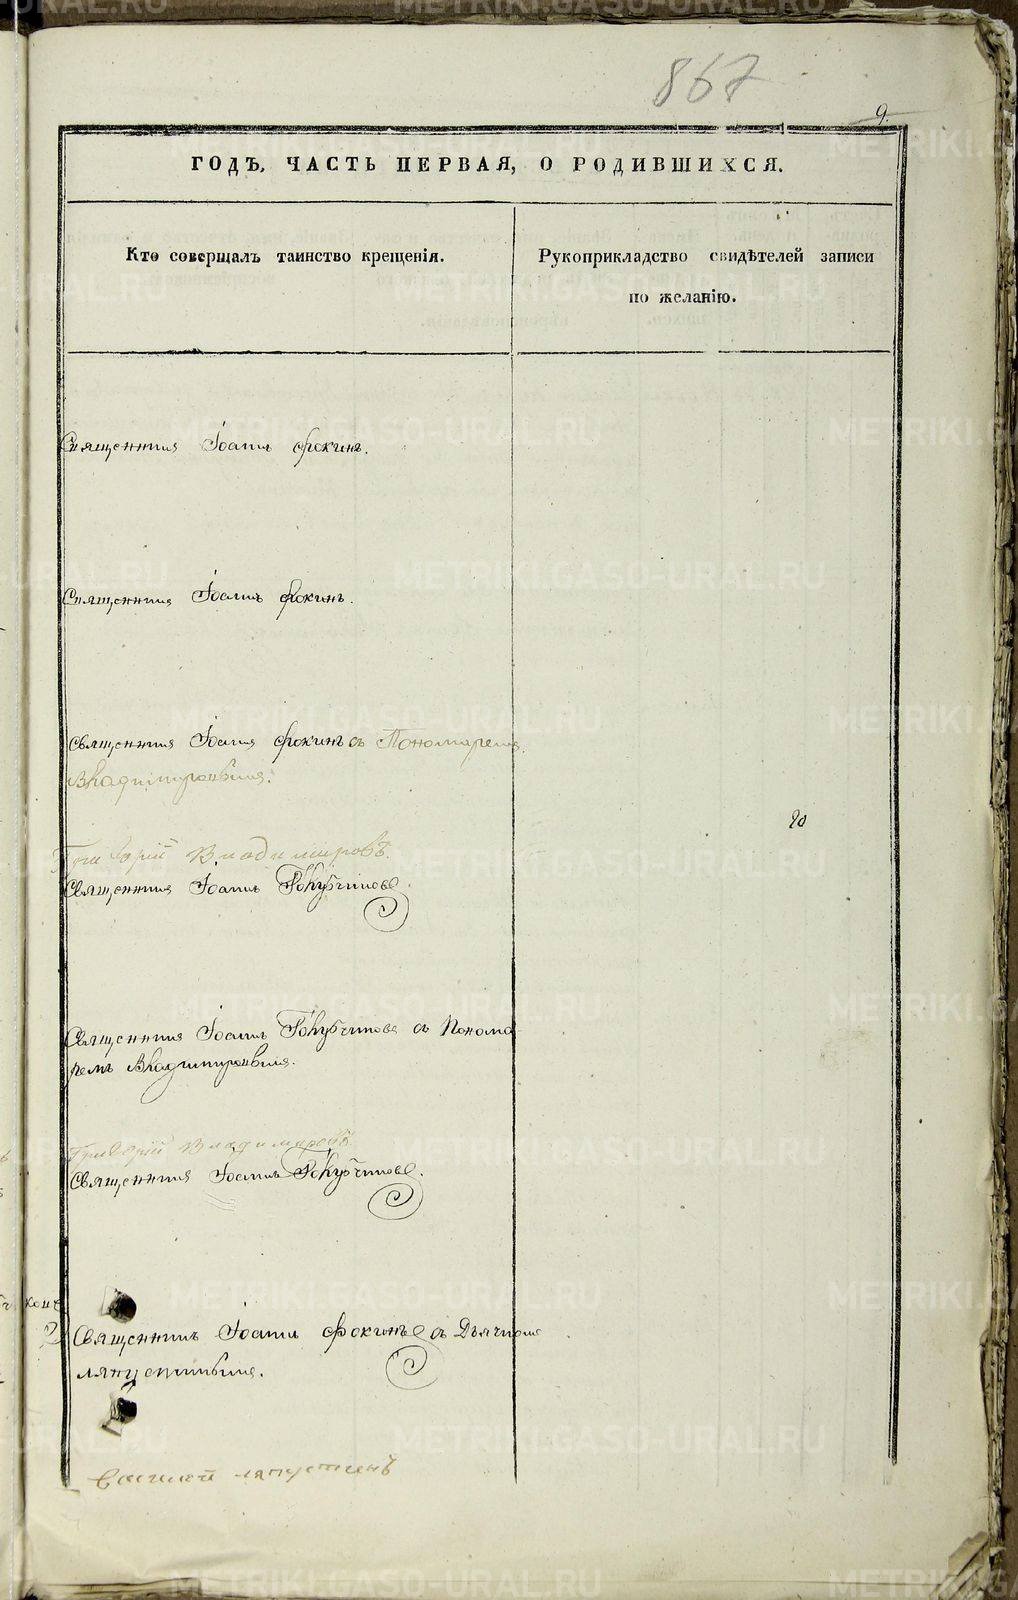 867
9.
ГОДЪ, ЧАСТЬ ПЕРВАЯ, О РОДИВШИХСЯ.
Кто совершалъ таинство крещенія.
Рукоприкладство свидѣтелей записи
по желанію.
Священникъ Іоаннъ Фокинъ.
Священникъ Іоаннъ Фокинъ.
Священникъ Іоаннъ Фокинъ съ Пономаремъ
Владимировымъ.
20
Григорій Владимировъ.
Священникъ Іоаннъ Голубчиковъ.
Священникъ Іоаннъ Голубчиковъ съ Понома-
ремъ Владимировымъ.
Григорій Владимировъ
Священникъ Іоаннъ Голубчиковъ.
Священникъ Іоаннъ Фокинъ съ Дьячкомъ
Ляпустинымъ.
Василій Ляпустинъ
METRIKI.GASO-URAL.RU